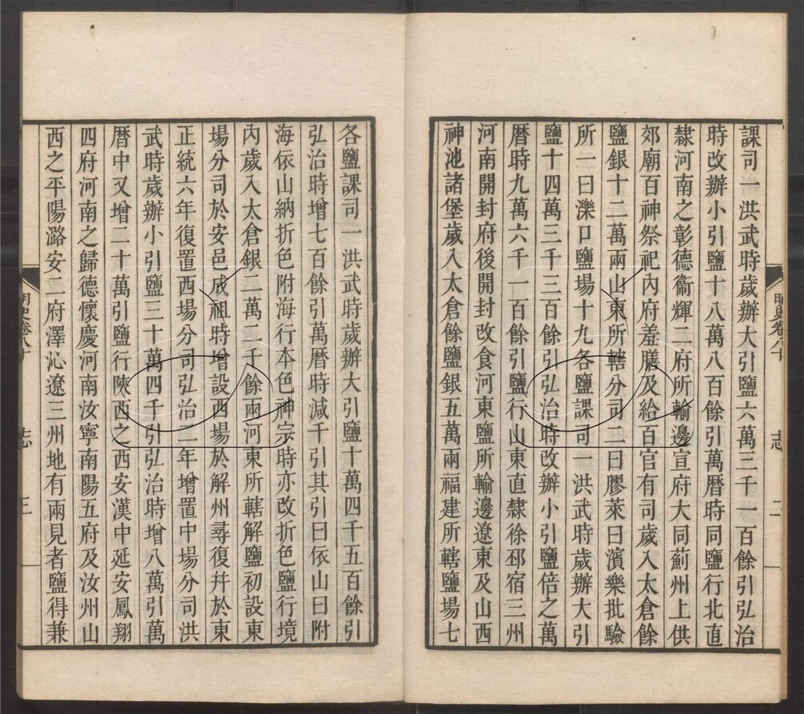 課司一洪武時歲辦大引鹽六萬三千一百餘引弘治
時改辦小引鹽十八萬八百餘引萬曆時同鹽行北直
隸河南之彰德衞輝二府所輸邊宣府大同薊州上供
郊廟百神祭祀內府羞膳及給百官有司歲入太倉餘
鹽銀十二萬兩山東所轄分司二曰膠萊曰濱樂批驗
所一曰濼口鹽場十九各鹽課司一洪武時歲辦大引
鹽十四萬三千三百餘引弘治時改辦小引鹽倍之萬
曆時九萬六千一百餘引鹽行山東直隸徐邳宿三州
河南開封府後開封改食河東鹽所輸邊遼東及山西
神池諸堡歲入太倉餘鹽銀五萬兩福建所轄鹽場七
明史卷八十
志
二
各鹽課司一洪武時歲辦大引鹽十萬四千五百餘引
弘治時增七百餘引萬曆時減千引其引曰依山曰附
海依山納折色附海行本色神宗時亦改折色鹽行境
內歲入太倉銀二萬二千餘兩河東所轄解鹽初設東
場分司於安邑成祖時增設西場於解州尋復幷於東
正統六年復置西場分司弘治二年增置中場分司洪
武時歲辦小引鹽三十萬四千引弘治時增八萬引萬
曆中又增二十萬引鹽行陝西之西安漢中延安鳳翔
四府河南之歸德懷慶河南汝寧南陽五府及汝州山
西之平陽潞安二府澤沁遼三州地有兩見者鹽得兼
明史卷八十
志
三